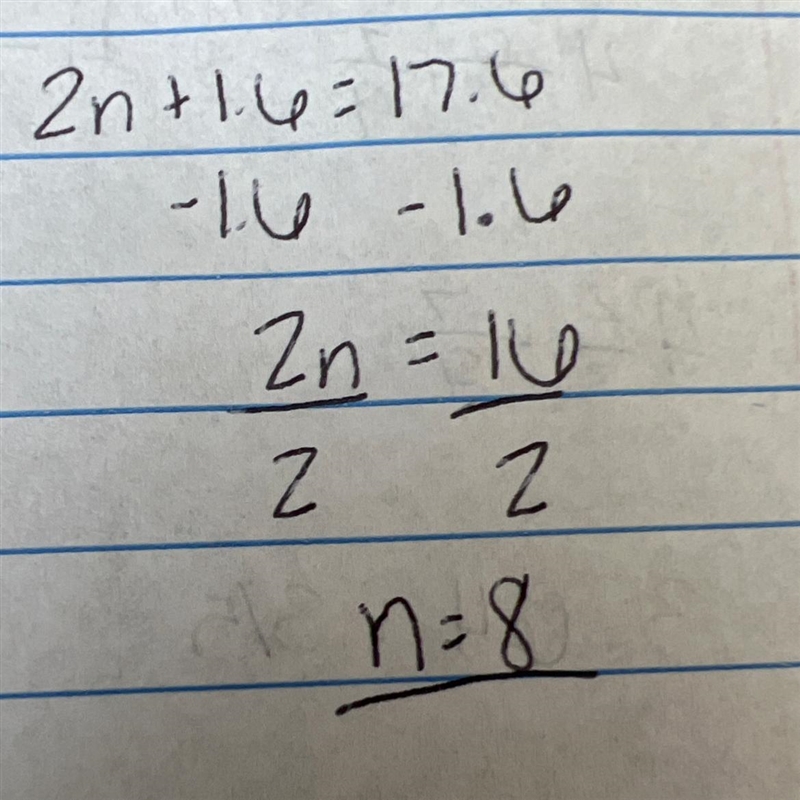 2n + 1.6 = 17.6
-1.6 -1.6
2n = 16
2 2
n = 8